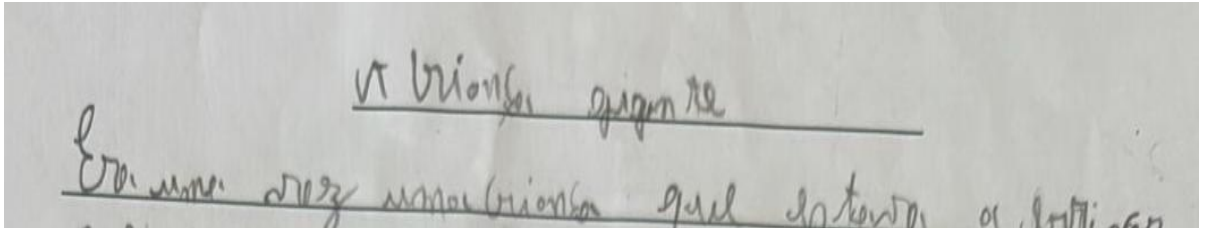 A criança gigante
Era uma vez uma criança que estava a